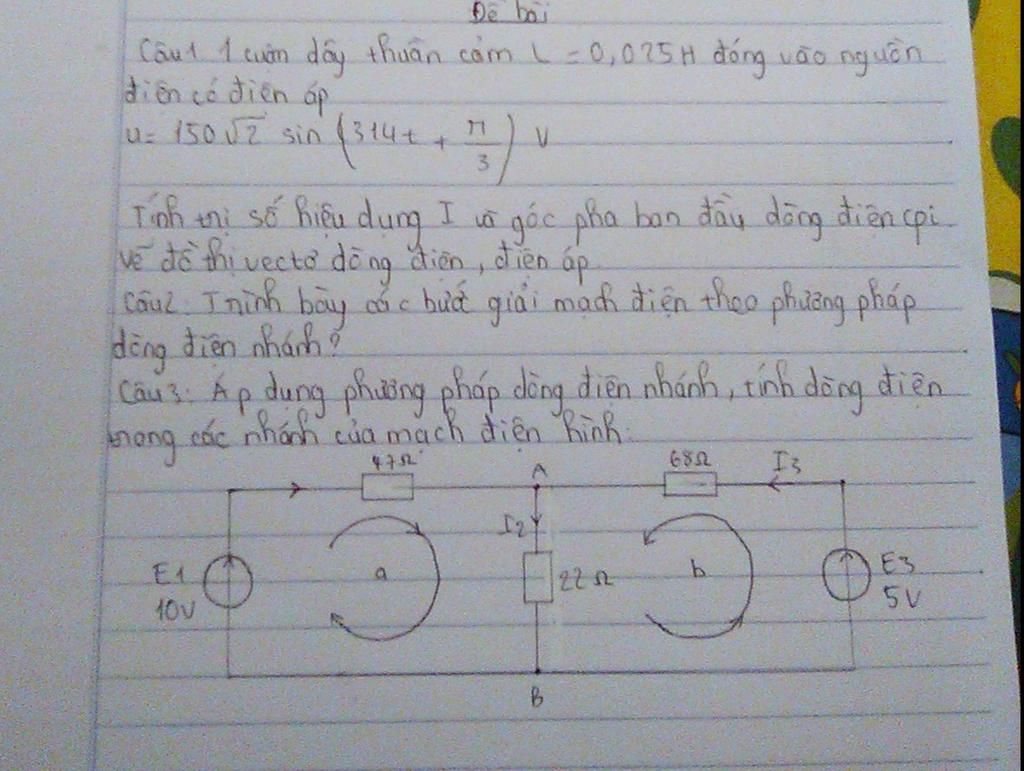 Đề bài
Câu 1 1 cuộn dây thuần cảm L = 0,025H đóng vào nguồn
điện có điện áp
u = 150√2 sin (314t + π/3) V
Tính trị số hiệu dụng I và góc pha ban đầu dòng điện φi
vẽ đồ thị vectơ dòng điện, điện áp
Câu 2: Trình bày các bước giải mạch điện theo phương pháp
dòng điện nhánh?
Câu 3: Áp dụng phương pháp dòng điện nhánh, tính dòng điện
trong các nhánh của mạch điện hình:
47Ω A 68Ω I3
I2
E1 a 22Ω b E3
10V 5V
B